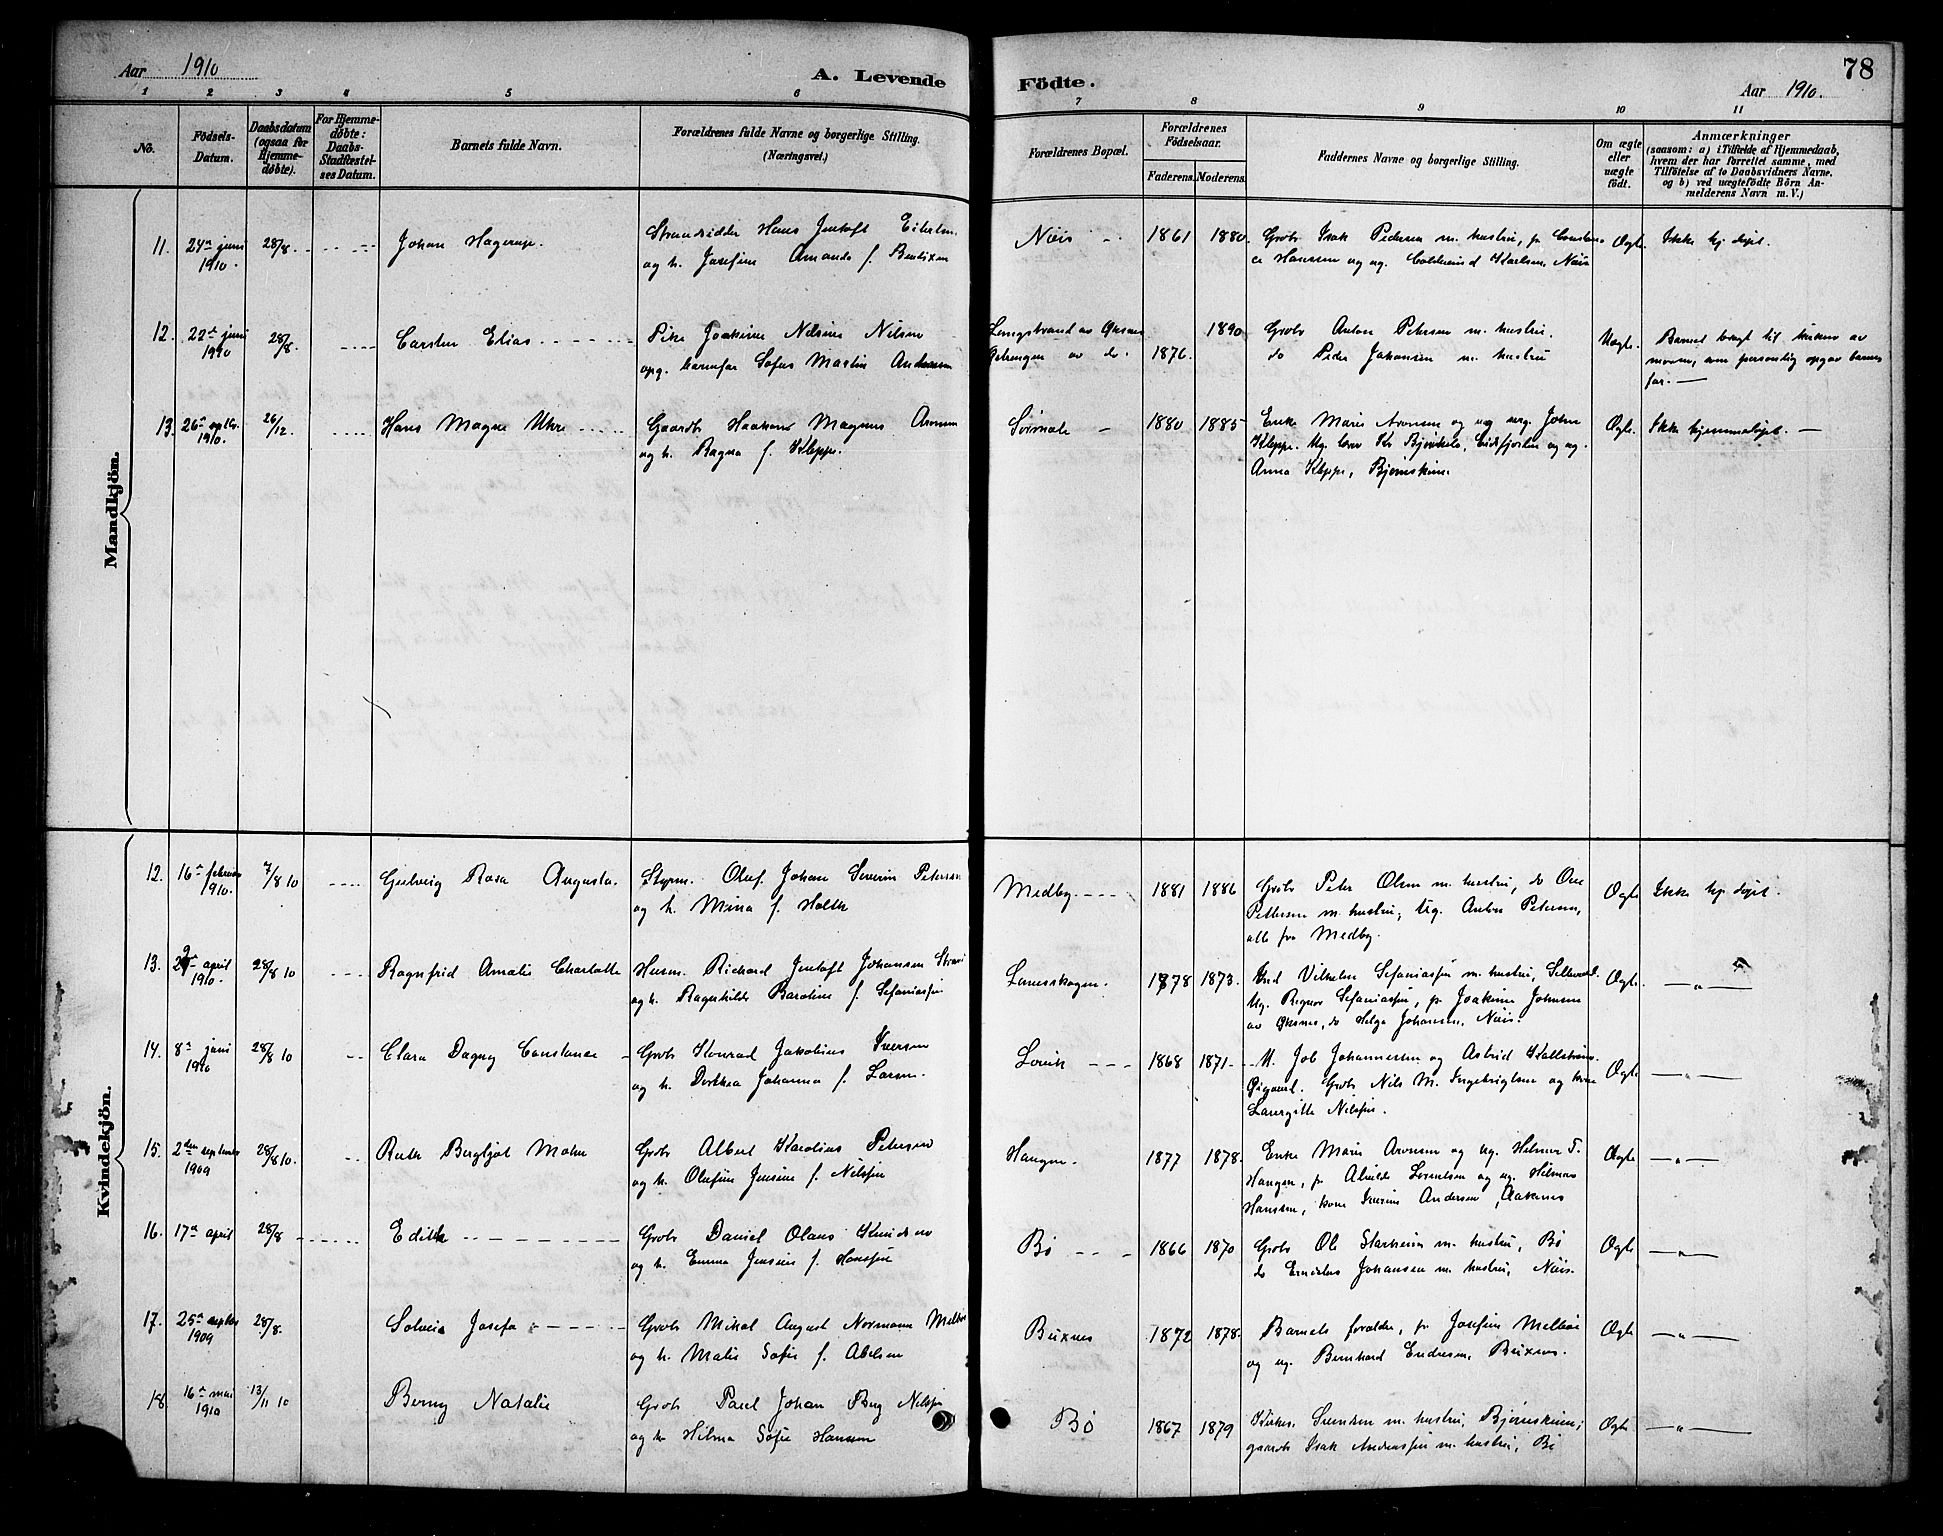 Aar 1910
A. Levende
Födte.
Aar 1910.
78
1 2 3 4 5 6 7 8 9 10 11
No.
Födsels-
Datum.
Daabsdatum
(ogsaa for
Hjemme-
døbte).
For Hjemme-
døbte:
Daabs-
Stadfæstel-
ses Datum.
Barnets fulde Navn.
Forældrenes fulde Navne og borgerlige Stilling.
(Næringsvei.)
Forældrenes Bopæl.
Forældrenes
Födselsaar.
Faderens. Moderens.
Faddernes Navne og borgerlige Stilling.
Om ægte
eller
uægte
födt.
Anmærkninger
(saasom: a) i Tilfælde af Hjemmedaab,
hvem der har forrettet samme, med
Tilföielse af to Daabsvidners Navne.
og b) ved uægtefödte Börn An-
melderens Navn m.V.)
Mandkjön.
11. 24de juni 28/8. Johan Hagerup. Hans Jentoft
1910. og h. Josefine Amanda f. Bentixen
1861 1880. Grbr. Isak Pedersen m. hustru, p.
Hanssen og ug. Karlsen, Ægte. Ikke hj. døpt.
12. 22de juni 28/8 Carsten Elias Pike Joakime Nilsine Nilsen
1910 opg. barnefar Sofus Martin Andersen
1890 Grbr. Anton Petersen m. hustru.
1876. do Peder Johansen m. hustru
Uægte. Barnet bragt til kirken av
moren, som personlig opgav barnets
far.
13. 26de septbr. 26/12. Hans Magne Uhre Gaardbr. Haakon Magnus Aronsen
1910. og h. Ragna f. Kleppe.
1880 1885 Enke Marie Aronsen og John
Kleppe. Ug. Eidsfjorden og ug.
Anna Kleppe, Bjørnskinn.
Ægte. Ikke hjemmedøpt.
Kvindekjön.
12. 16de februar 7/8 10 Gudveig Rosa Augusta. Styrm. Oluf Johan Severin Petersen
1910. og h. Mina f. Holth
Medby. 1881 1886 Grbr. Peter Olsen m. hustru, do Ove
Pettersen m. hustru, Ug. Anton Petersen,
alle fra Medby.
Ægte Ikke hj. døpt.
13. april 28/8 10 Ragnfrid Amalie Charlotte Husm. Richard Jentoft Johansen
1910. og h. Ragnhilde Baroline f. Sefaniassen
1878 1873. Vilhelm Sefaniassen m. hustru,
Ug. Ragnar Sefaniassen, p. Joakime Johnsen
av Øksnes, do Helga Johansen,
Ægte. — „ —
14. 8de juni 28/8 10 Clara Dagny Constance Grbr. Konrad Jakobius Iversen
1910 og h. Dorthea Johanna f. Larsen.
1868 1871 Job Johannessen og Astrid
Grbr. Nils M. Ingebrigtsen og kone
Ægte — „ —
15. 2den september 28/8 10. Ruth Bergljot Grbr. Albert Karolius Petersen
1909 og h. Olufine Jensine f. Nilssen
Haugen. 1877 1878. Enke Marie Aronsen og ug. Helmer T.
Haugen, p. Lorentsen og ug. Hilmar
Hanssen, kone Andersen,
Ægte — „ —
16. 17de april 28/8 Edith Grbr. Daniel Olaus Knudsen
og h. Emma Jensine f. Hanssen
Bø 1866 1870 Grbr. Ole Starheim m. hustru, Bø
do Johansen m. hustru,
Ægte — „ —
17. 25de septbr 28/8. Solveig Josefa Grbr. Mikal August Normann
1909 og h. Malie Sofie f. Abelsen
Buxnes 1872 1878. Barnets forældre, p. Josefine
og ug. Bernhard Endresen, Buxnes.
Ægte — „ —
18. 16de mai 13/11 10 Berny Natalie Grbr. Paul Johan Berg Nilssen
1910 og h. Hilma Sofie Hanssen
Bø 1867 1879 m. hustru, Bjørnskinn;
gaardbr. Isak Andreassen m. hustru, Bø
Ægte — „ —